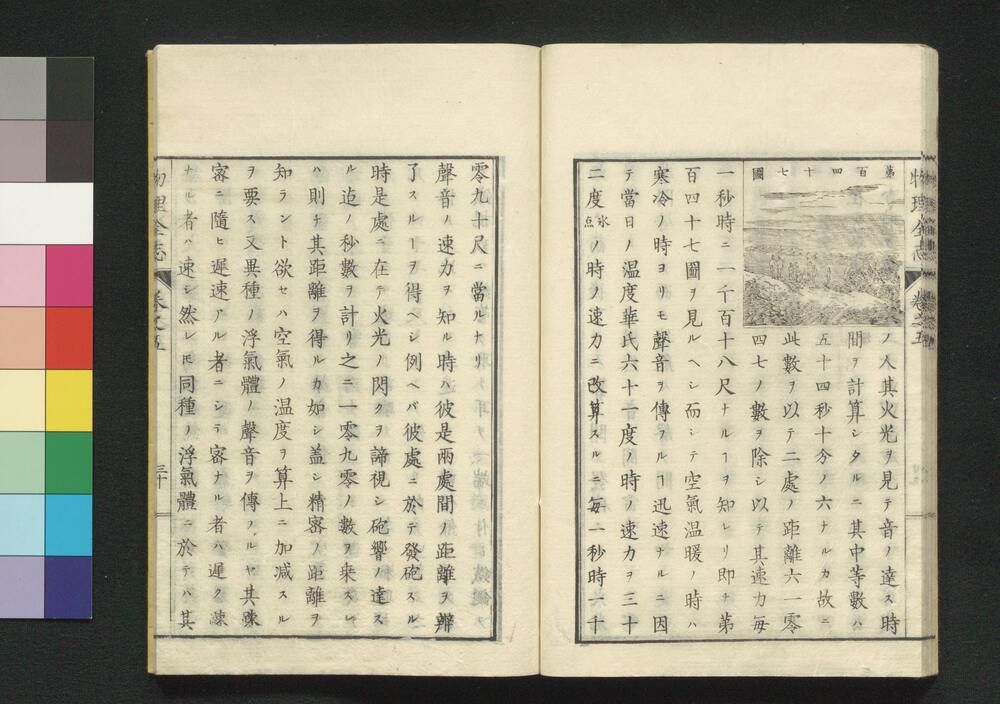 物理全志
卷之五
第百四十七圖
ノ人其火光ヲ見テ音ノ達ス時
間ヲ計算シタルニ其中等數ハ
五十四秒十分ノ六ナルカ故ニ
此數ヲ以テ二處ノ距離六一零
四七ノ數ヲ除シ以テ其速力每
一秒時ニ一千百十八尺ナルヿヲ知レリ即チ第
百四十七圖ヲ見ルヘシ而シテ空氣温暖ノ時ハ
寒冷ノ時ヨリモ聲音ヲ傳フルヿ迅速ナルニ因
テ當日ノ温度華氏六十一度ノ時ノ速力ヲ三十
二度氷点ノ時ノ速力ニ改算スルニ每一秒時一千
零九十尺ニ當ルナリ
聲音ノ速力ヲ知ル時ハ彼是兩處間ノ距離ヲ辨
了スルヿヲ得ヘシ例ヘバ彼處ニ於テ發砲スル
時是處ニ在テ火光ノ閃クヲ諦視シ砲響ノ達ス
ル迄ノ秒數ヲ計リ之ニ一零九零ノ數ヲ乗スレ
ハ則チ其距離ヲ得ルカ如シ盖シ精密ノ距離ヲ
知ラント欲セハ空氣ノ温度ヲ算上ニ加減スル
ヲ要ス又異種ノ浮氣體ノ聲音ヲ傳フルヤ其疎
密ニ隨ヒ遲速アル者ニシテ密ナル者ハ遲ク疎
ナル者ハ速シ然レ𪜈同種ノ浮氣體ニ於テハ其
物理全志
卷之五
三十